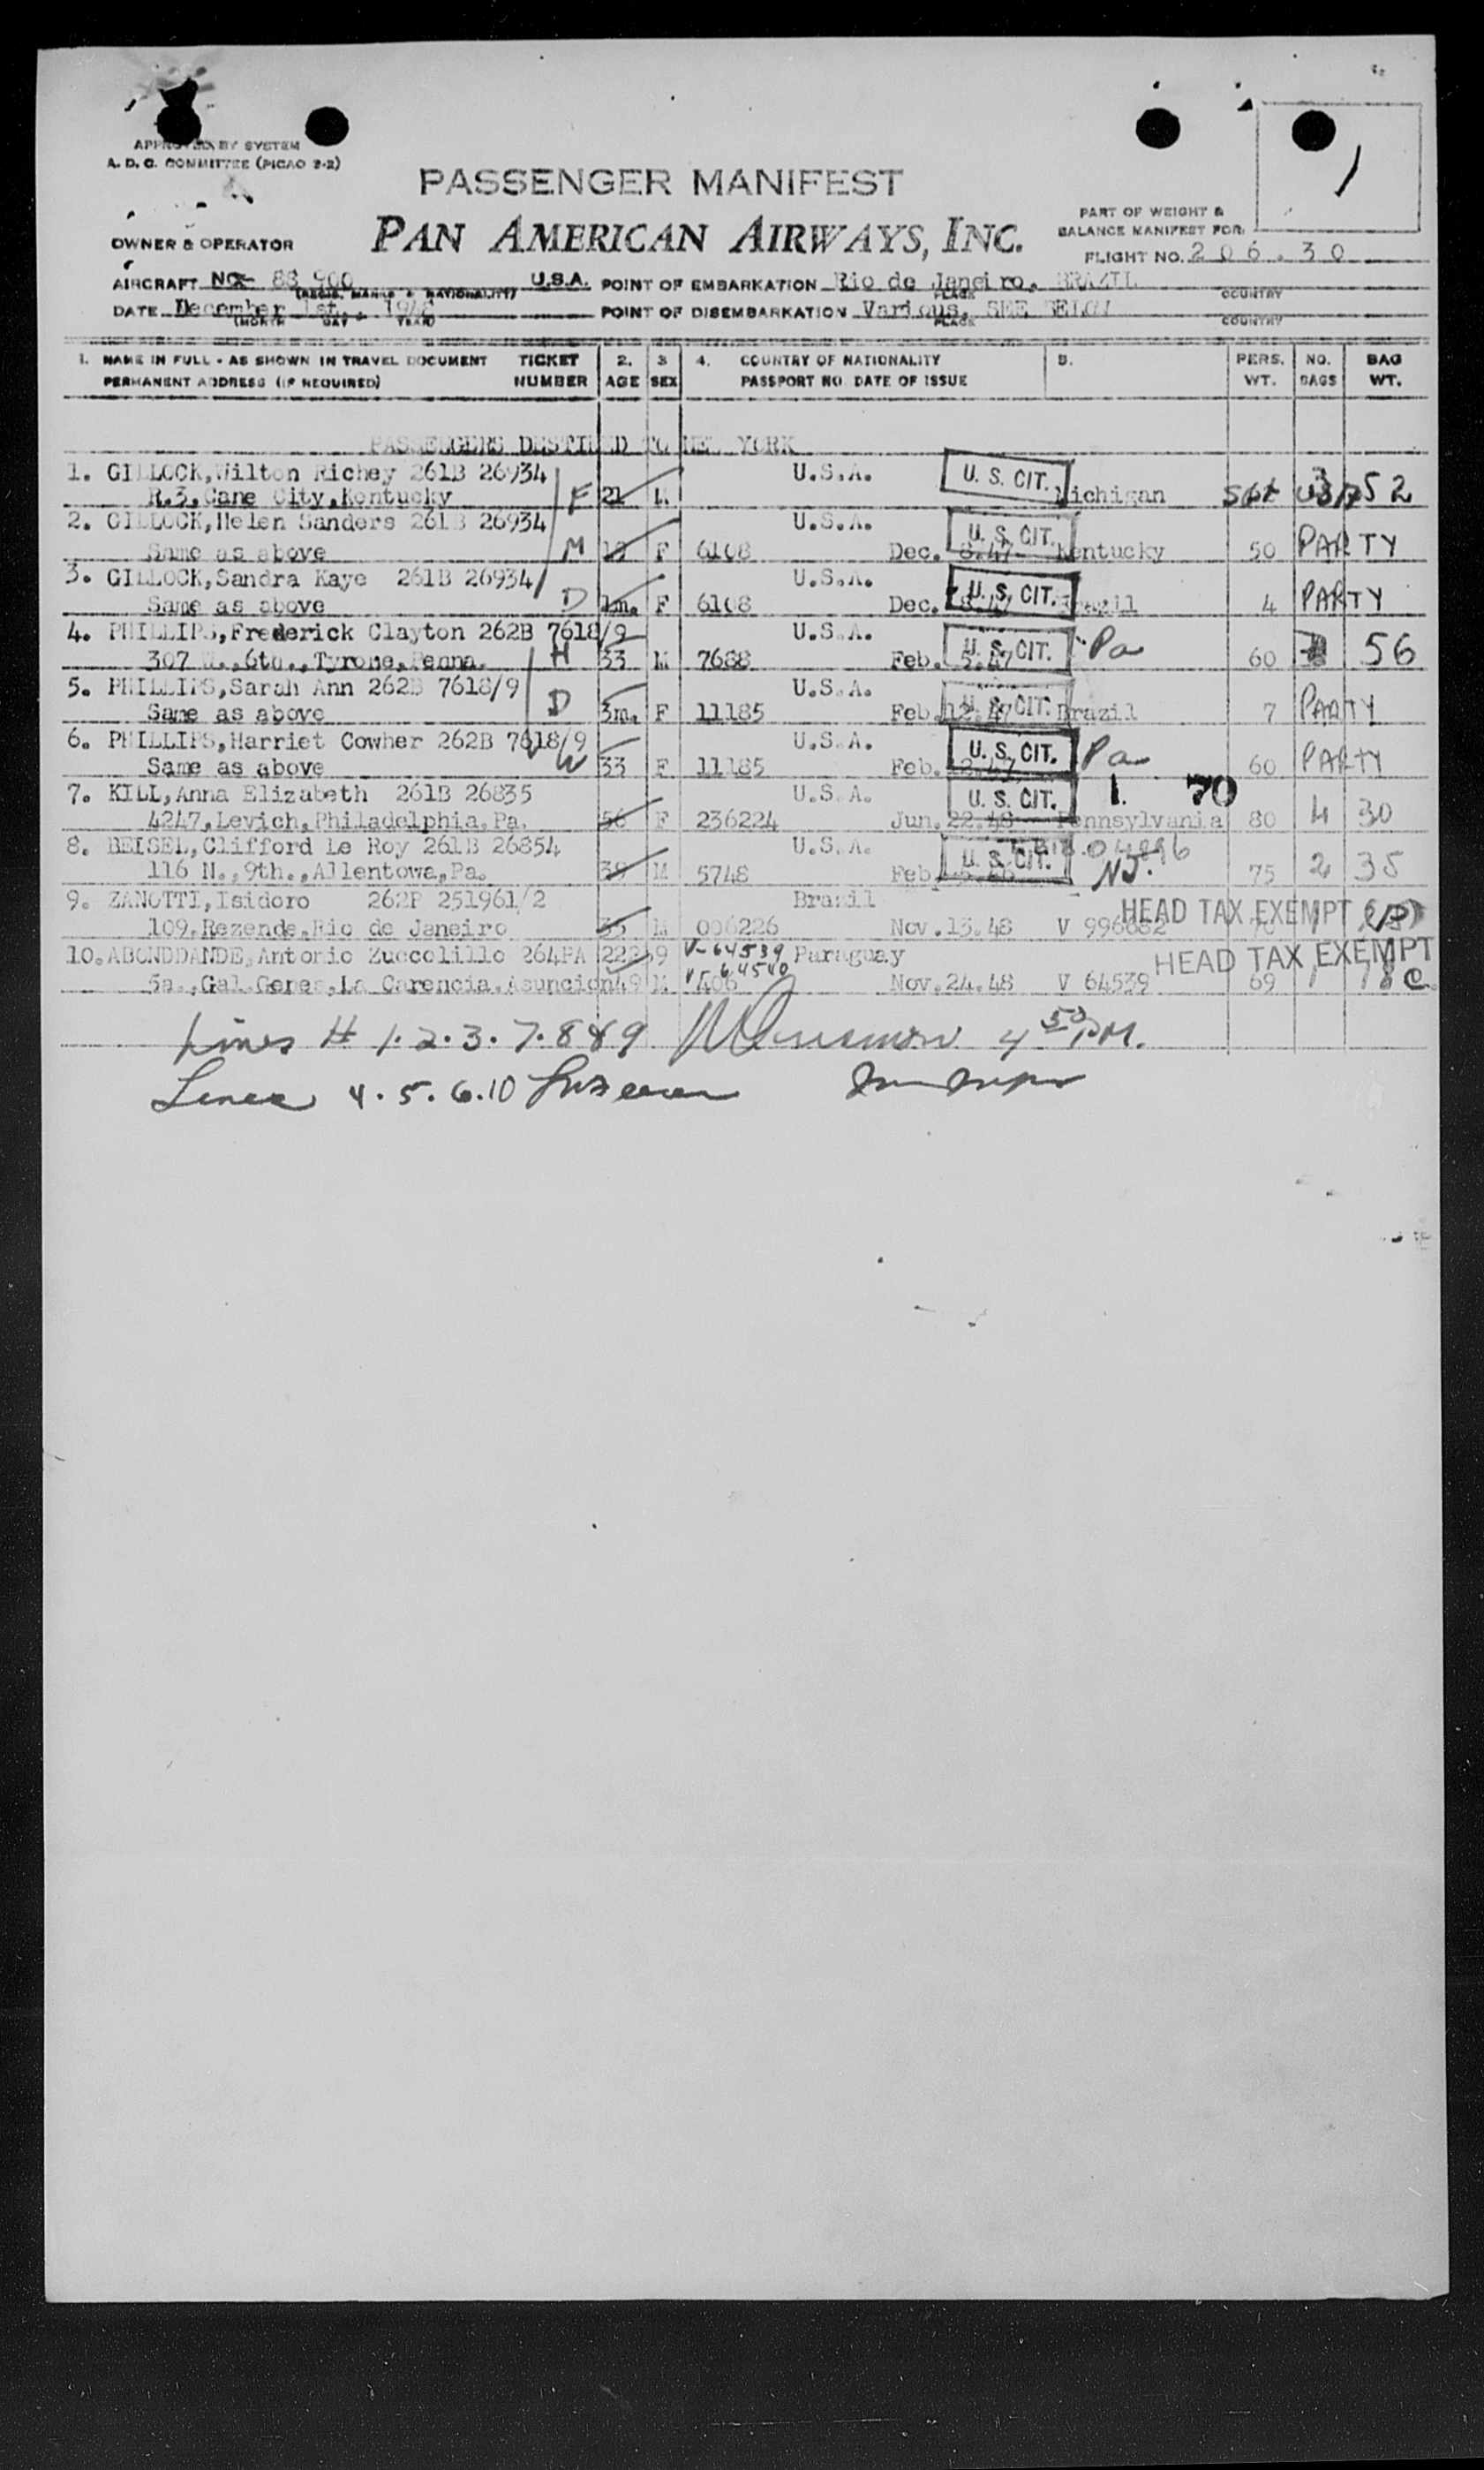 APPROVED BY SYSTEM
A. D. C. COMMITTEE (PICAO 2-2)
PASSENGER MANIFEST
PAN AMERICAN AIRWAYS, INC.
OWNER & OPERATOR
PART OF WEIGHT &
BALANCE MANIFEST FOR:
FLIGHT NO. 206.30
AIRCRAFT NC- 88 900 U.S.A. POINT OF EMBARKATION Rio de Janeiro, BRAZIL
(REGIS. MARKS & NATIONALITY) PLACE COUNTRY
DATE December 1st., 1948 POINT OF DISEMBARKATION Various, SEE BELOW
(MONTH DAY YEAR) PLACE COUNTRY
1. NAME IN FULL - AS SHOWN IN TRAVEL DOCUMENT TICKET 2. 3 4. COUNTRY OF NATIONALITY 5. PERS. NO. BAG
PERMANENT ADDRESS (IF REQUIRED) NUMBER AGE SEX PASSPORT NO. DATE OF ISSUE WT. BAGS WT.
PASSENGERS DESTINED TO NEW YORK
1. GILLOCK, Wilton Richey 261B 26934 U.S.A. U. S. CIT.
R.3, Cane City, Kentucky F 21 M Michigan 52
2. GILLOCK, Helen Sanders 261B 26934 U.S.A. U. S. CIT.
Same as above M F 6108 Dec. 8.47 Kentucky 50 PARTY
3. GILLOCK, Sandra Kaye 261B 26934 U.S.A. U. S. CIT.
Same as above D 1m. F 6108 Dec. 8.47 Brazil 4 PARTY
4. PHILLIPS, Frederick Clayton 262B 7618/9 U.S.A. U. S. CIT. Pa
307 W., 6th., Tyrone, Penna. H 33 M 7688 Feb. 60 56
5. PHILLIPS, Sarah Ann 262B 7618/9 U.S.A. U. S. CIT.
Same as above D 3m. F 11185 Feb. 12.47 Brazil 7 PARTY
6. PHILLIPS, Harriet Cowher 262B 7618/9 U.S.A. U. S. CIT. Pa
Same as above W 33 F 11185 Feb. 12.47 60 PARTY
7. KILL, Anna Elizabeth 261B 26835 U.S.A. U. S. CIT. 1. 70
4247, Levich, Philadelphia, Pa. 56 F 236224 Jun. 22.48 Pennsylvania 80 4 30
8. BEISEL, Clifford Le Roy 261B 26854 U.S.A. U. S. CIT.
116 N., 9th., Allentowa, Pa. 38 M 5748 Feb. NJ. 75 2 35
9. ZANOTTI, Isidoro 262P 251961/2 Brazil HEAD TAX EXEMPT (B)
109, Rezende, Rio de Janeiro 35 M 006226 Nov. 13.48 V 996682
10. ABONDDANDE, Antonio Zuccolillo 264PA 22239 V-64539 Paraguay HEAD TAX EXEMPT
5a., Gal. Genes, La Carencia, Asuncion 49 M 406 V-64540 Nov. 24.48 V 64539 69 1 18 C
Lines # 1. 2. 3. 7. 8 & 9 4 50 P.M.
Lines 4. 5. 6. 10